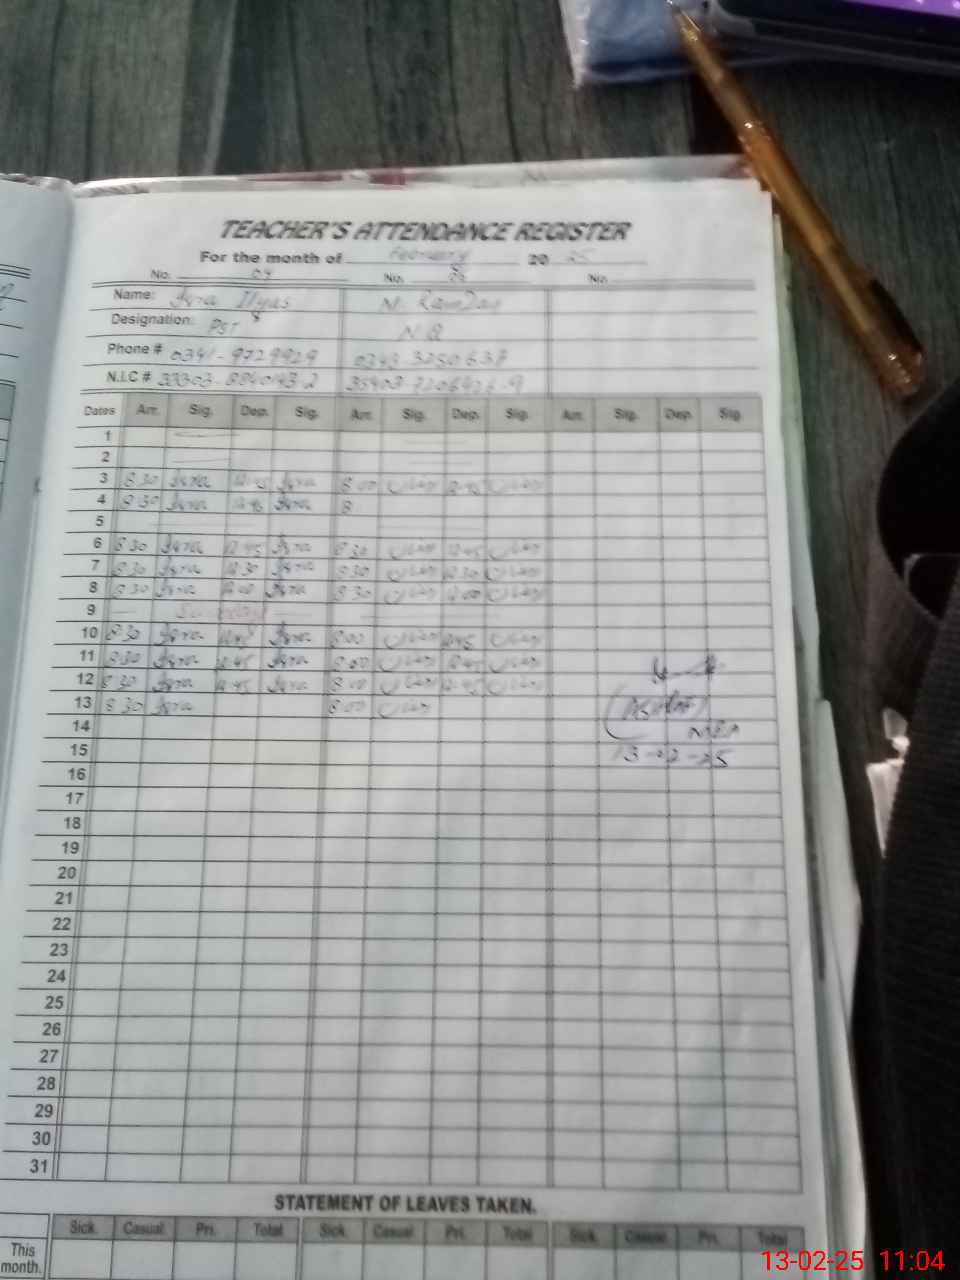 TEACHER'S ATTENDANCE REGISTER
For the month of February 2025
No. 04 No. No.
Name: Isra Ilyas M. RamZan
Designation: PST N.Q
Phone # 0341-9729929 0343 3250637
N.I.C #
Dates Arr. Sig. Dep. Sig. Arr. Sig. Dep. Sig. Arr. Sig. Dep. Sig.
1
2
3 8 30 Isra 12 45 Isra 8 00 12 45
4 8 30 Isra 12 45 Isra 8
5
6 8 30 Isra 12 45 Isra 8 30 12 45
7 8 30 Isra 12 30 Isra 8 30 12 30
8 8 30 Isra 12 00 Isra 8 30 12 00
9 Sunday
10 8 30 Isra 12 45 Isra 8 00 12 45
11 8 30 Isra 12 45 Isra 8 00 12 45
12 8 30 Isra 12 45 Isra 8 00 12 45
13 8 30 Isra 8 00
(ASHRAF)
14 MEA
15 13-02-25
16
17
18
19
20
21
22
23
24
25
26
27
28
29
30
31
STATEMENT OF LEAVES TAKEN.
Sick. Casual. Pri. Total Sick. Casual. Pri. Total Sick. Casual. Pri. Total
This month.
13-02-25 11:04